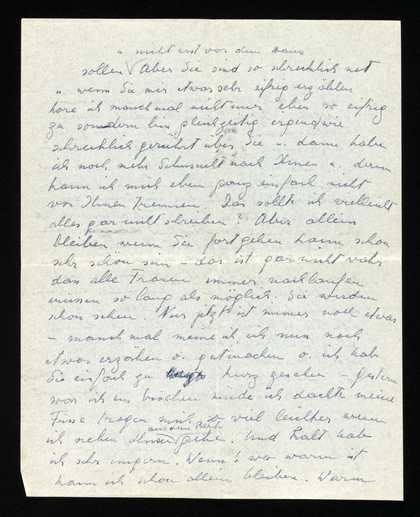 u. nicht erst vor dem Haus
sollen. Aber Sie sind so schrecklich nett
u. wenn Sie mir etwas sehr eifrig erzählen
höre ich manchmal nicht mehr eben so eifrig
zu sondern bin gleichzeitig irgendwie
schrecklich gerührt über Sie u. dann habe
ich noch mehr Sehnsucht nach Ihnen u. dann
kann ich mich eben ganz einfach nicht
von Ihnen trennen. Das sollte ich vielleicht
alles gar nicht schreiben? Aber allein
bleiben wenn Sie fortgehen kann schon
sehr schön sein – das ist gar nicht wahr
das alle Frauen immer nachlaufen
müssen so lang als möglich. Sie werden
schon sehen. Nur jetzt ist immer noch etwas
– manchmal meine ich ich muss noch
etwas erzählen o. gutmachen o. ich hab
Sie einfach zu kurz gesehen – gestern
war ich ein bisschen müde ich dachte meine
Füsse tragen mich viel leichter wenn
ich neben Ihnen gehe. Und kalt hab
ich sehr ungern. Wenn's wo warm ist
kann ich schon allein bleiben. Warm